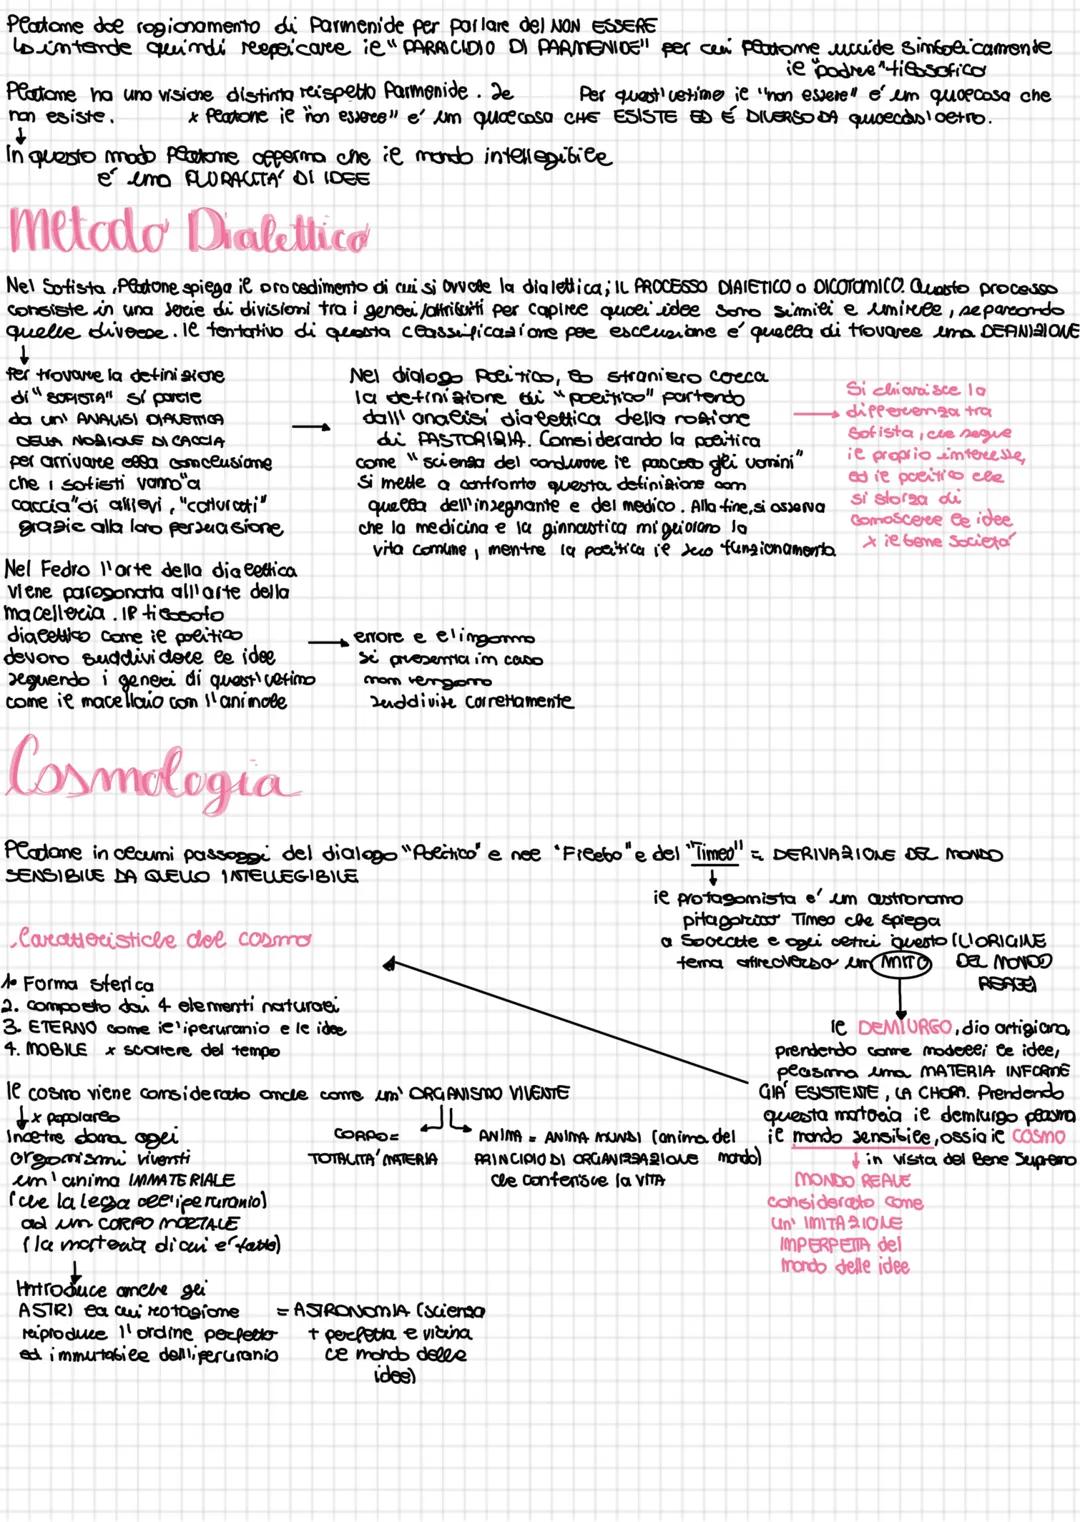 Platone dal ragionamento di Parmenide per parlare del NON ESSERE
Lo intende quindi replicare il "PARACIDIO DI PARMENIDE" per cui Platone uccide simbolicamente
il "padre" filosofico
Platone ha una visione distinta rispetto Parmenide. Se Per quest'ultimo il "non essere" é un qualcosa che
non esiste. x Platone il "non essere" é un qualcosa CHE ESISTE ED É DIVERSO DA qualcos'altro.
In questo modo Platone afferma che il mondo intellegibile
é una PLURALITA' DI IDEE
Metodo Dialettico
Nel Sofista, Platone spiega il procedimento di cui si avvale la dialettica; IL PROCESSO DIAIETICO o DICOTOMICO. Questo processo
consiste in una serie di divisioni tra i generi/attributi per capire quali idee sono simili e unirle, separando
quelle diverse. Il tentativo di questa classificazione per esclusione é quella di trovare una DEFINIZIONE
Per trovare la definizione
di "SOFISTA" si parte
da un' ANALISI DIALETTICA
DELLA NOZIONE DI CACCIA
per arrivare alla conclusione
che i sofisti vanno "a
caccia" di allievi, "catturati"
grazie alla loro persuasione
Nel dialogo Politico, lo straniero cerca
la definizione di "politico" partendo
dall' analisi dialettica della nozione
di PASTORIZIA. Considerando la politica
come "scienza del condurre il pascolo gli uomini"
si mette a confronto questa definizione con
quella dell'insegnante e del medico. Alla fine, si osserva
che la medicina e la ginnastica migliorano la
vita comune, mentre la politica il suo funzionamento
Si chiarisce la
differenza tra
Sofista, che segue
il proprio interesse,
ed il politico che
si sforza di
conoscere le idee
x il bene Societa'
Nel Fedro l'arte della dialettica
viene paragonata all'arte della
macelleria. Il filosofo
dialettico come il politico
devono suddividere le idee
seguendo i generi di quest'ultimo
come il macellaio con l'animale
errore e l'inganno
si presenta in caso
non vengono
suddivise correttamente
Cosmologia
Platone in alcuni passaggi del dialogo "Politico" e nel "Filebo" e del "Timeo" = DERIVAZIONE DEL MONDO
SENSIBILE DA QUELLO INTELLEGIBILE
il protagonista e' un astronomo
pitagorico Timeo che spiega
a Socrate e agli altri questo (L'ORIGINE
tema attraverso un MITO DEL MONDO
REALE)
Caratteristiche del cosmo
1. Forma sferica
2. composto dai 4 elementi naturali
3. ETERNO come l'iperuranio e le idee
4. MOBILE x scorrere del tempo
Il DEMIURGO, dio artigiano,
prendendo come modelli le idee,
plasma una MATERIA INFORME
GIA' ESISTENTE, LA CHORA. Prendendo
questa materia il demiurgo plasma
il mondo sensibile, ossia il COSMO
in vista del Bene Supremo
MONDO REALE
considerato come
un' IMITAZIONE
IMPERFETTA del
mondo delle idee
Il cosmo viene considerato anche come un' ORGANISMO VIVENTE
x popolarlo
Inoltre dona agli
organismi viventi
un' anima IMMATERIALE
(che la lega all'iperuranio)
ad un CORPO MORTALE
(la materia di cui e' fatto)
CORPO =
TOTALITA' MATERIA
ANIMA = ANIMA MUNDI (anima del
PRINCIPIO DI ORGANIZZAZIONE mondo)
che conferisce la VITA
Introduce anche gli
ASTRI la cui rotazione
riproduce l'ordine perfetto
ed immutabile dell'iperuranio
= ASTRONOMIA (scienza
+ perfetta e vicina
al mondo delle
idee)